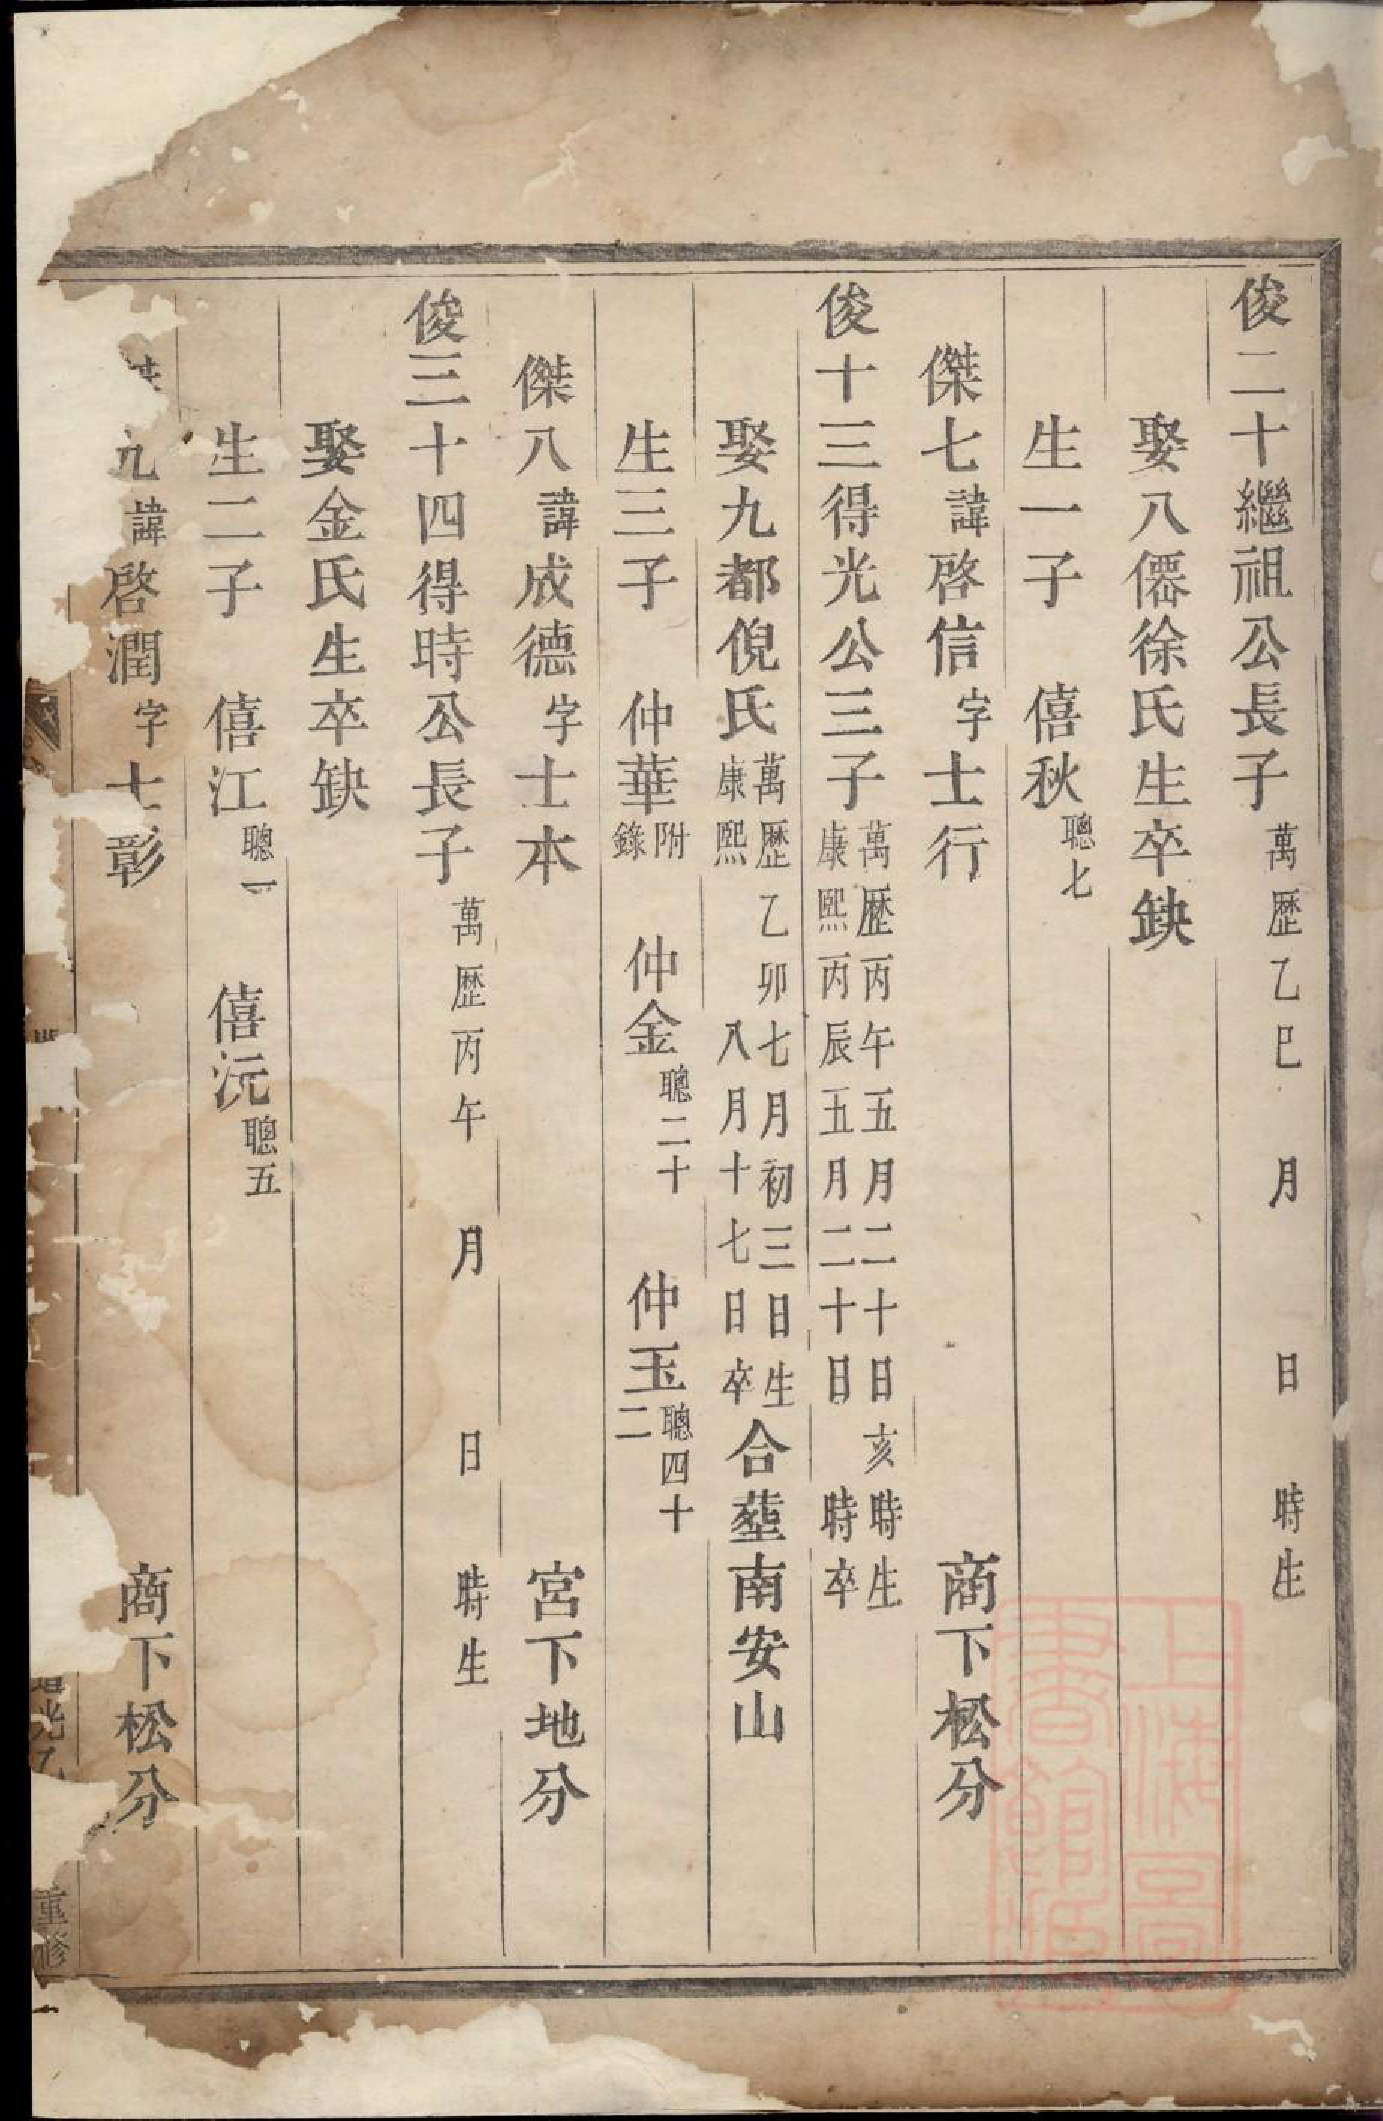 俊二十繼祖公長子萬歷乙巳 月 日 時生
娶八僊徐氏生卒缺
生一子 僖秋聰七
傑七諱啓信字士行 商下松分
俊十三得光公三子萬歷丙午五月二十日亥時生康熙丙辰五月二十日 時卒
娶九都倪氏萬歷乙卯七月初三日生康熙 八月十七日卒合塟南安山
生三子 仲華附錄 仲金聰二十 仲玉聰四十二
傑八諱成德字士本 宮下地分
俊三十四得時公長子萬歷丙午 月 日 時生
娶金氏生卒缺
生二子 僖江聰一 僖沅聰五
傑九諱啓潤字士彰 商下松分
重修
上海圖書館藏